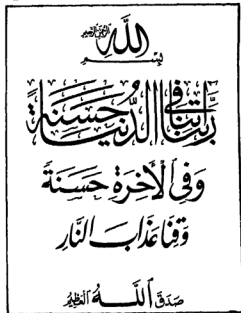 بسم الله الرحمن الرحيم
ربنا آتنا في الدنيا حسنة
وَفِي الْآخِرَةِ حَسَنَةً
وَقِنَا عَذَابَ النَّارِ
صَدَقَ اللهُ العَظِيمُ